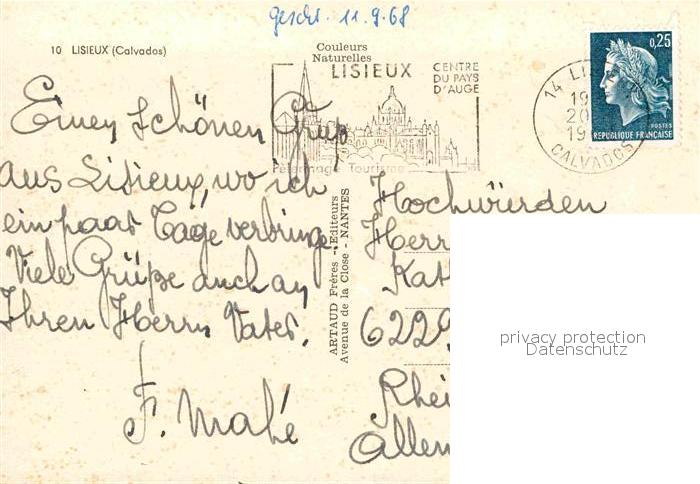 gescht. 11.9.68
10 LISIEUX (Calvados)
Couleurs
Naturelles
LISIEUX
CENTRE
DU PAYS
D'AUGE
Pelerinage Tourisme
14 LI
19
20
19
CALVADOS
0,25
POSTES
REPUBLIQUE FRANÇAISE
Einen schönen Gruß
aus Lisieux, wo ich
ein paar Tage verbringe.
Viele Grüße auch an
Ihren Herrn Vater.
F. Mahé
ARTAUD Frères - Editeurs
Avenue de la Close - NANTES
Hochwürden
Herr
Kat
6229
Rhei
Allem
privacy protection
Datenschutz